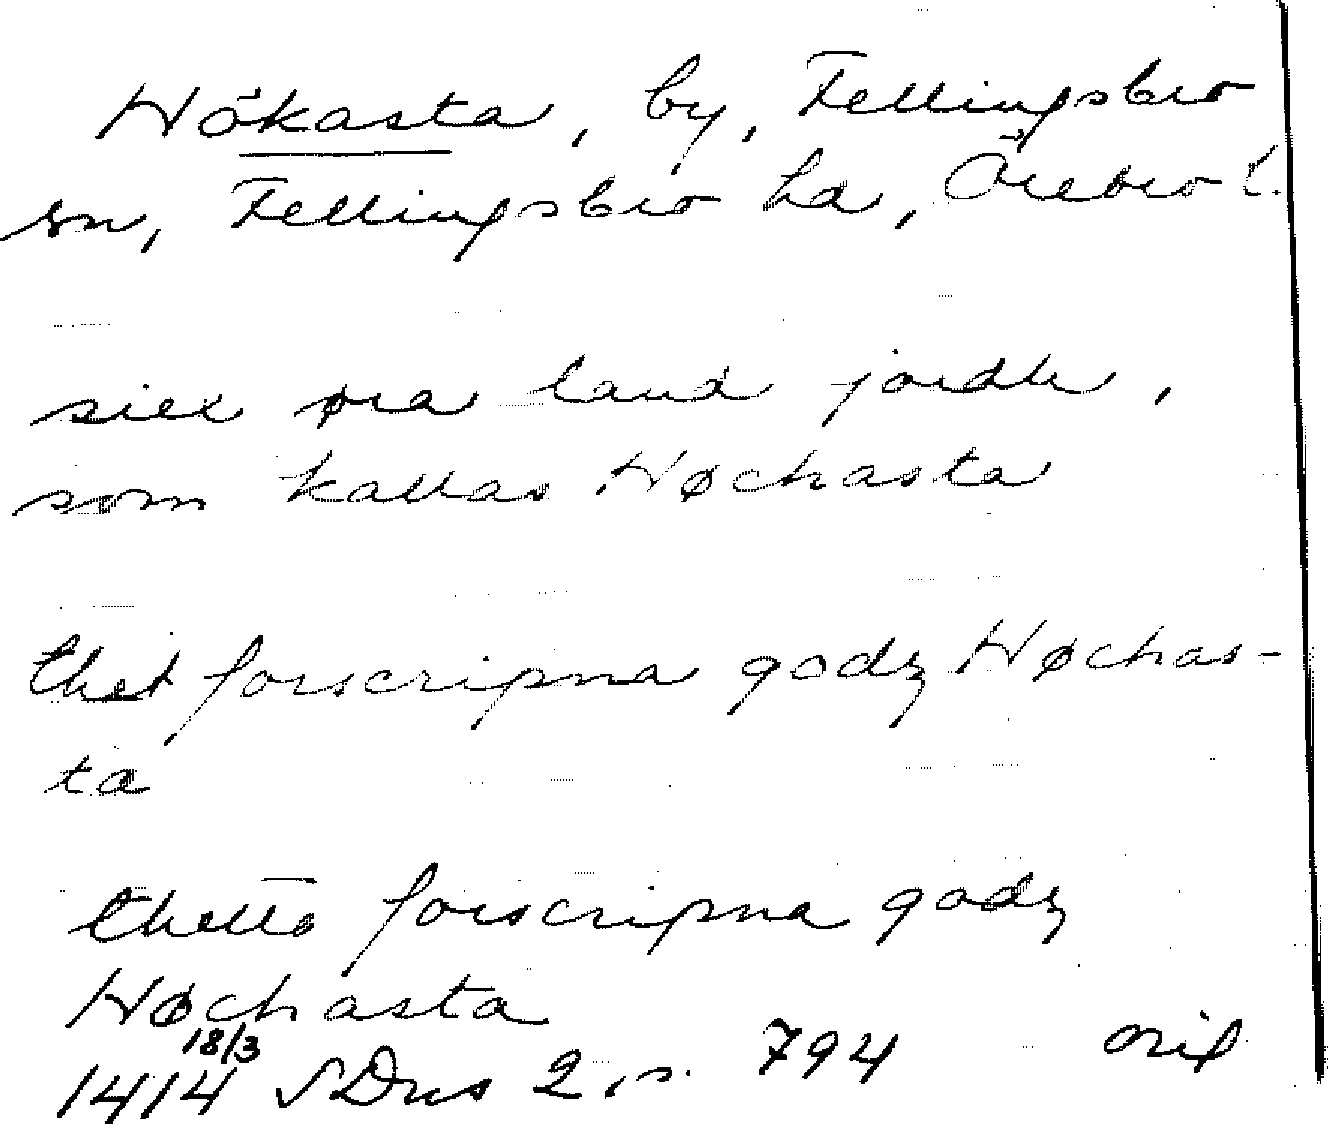 Hökasta, by, Fellingsbro
sn, Fellingsbro hd, Örebro l.
siex øra land jordh,
som kallas Høchasta
thet forscripna godz Høchas-
ta
thetta forscripna godz
Høchasta
18/3
1414 SDns 2, s. 794 orig